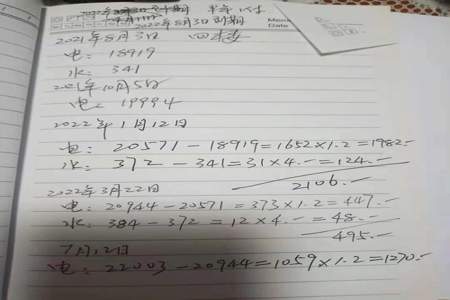 2022年8月3日到期
2021年8月3日
电: 18919
水: 341
2021年10月5日
电: 19994
2022年1月12日
电: 20571-18919=1652×1.2=1982.-
水: 372-341=31×4.-=124.-
2106.-
2022年3月22日
电: 20944-20571=373×1.2=447.-
水: 384-372=12×4.-=48.-
495.-
7月12日
电: 22003-20944=1059×1.2=1270.-